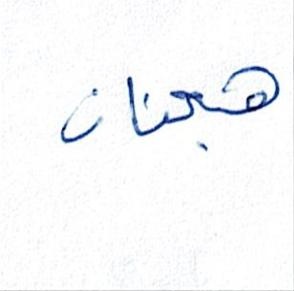 هيجنان